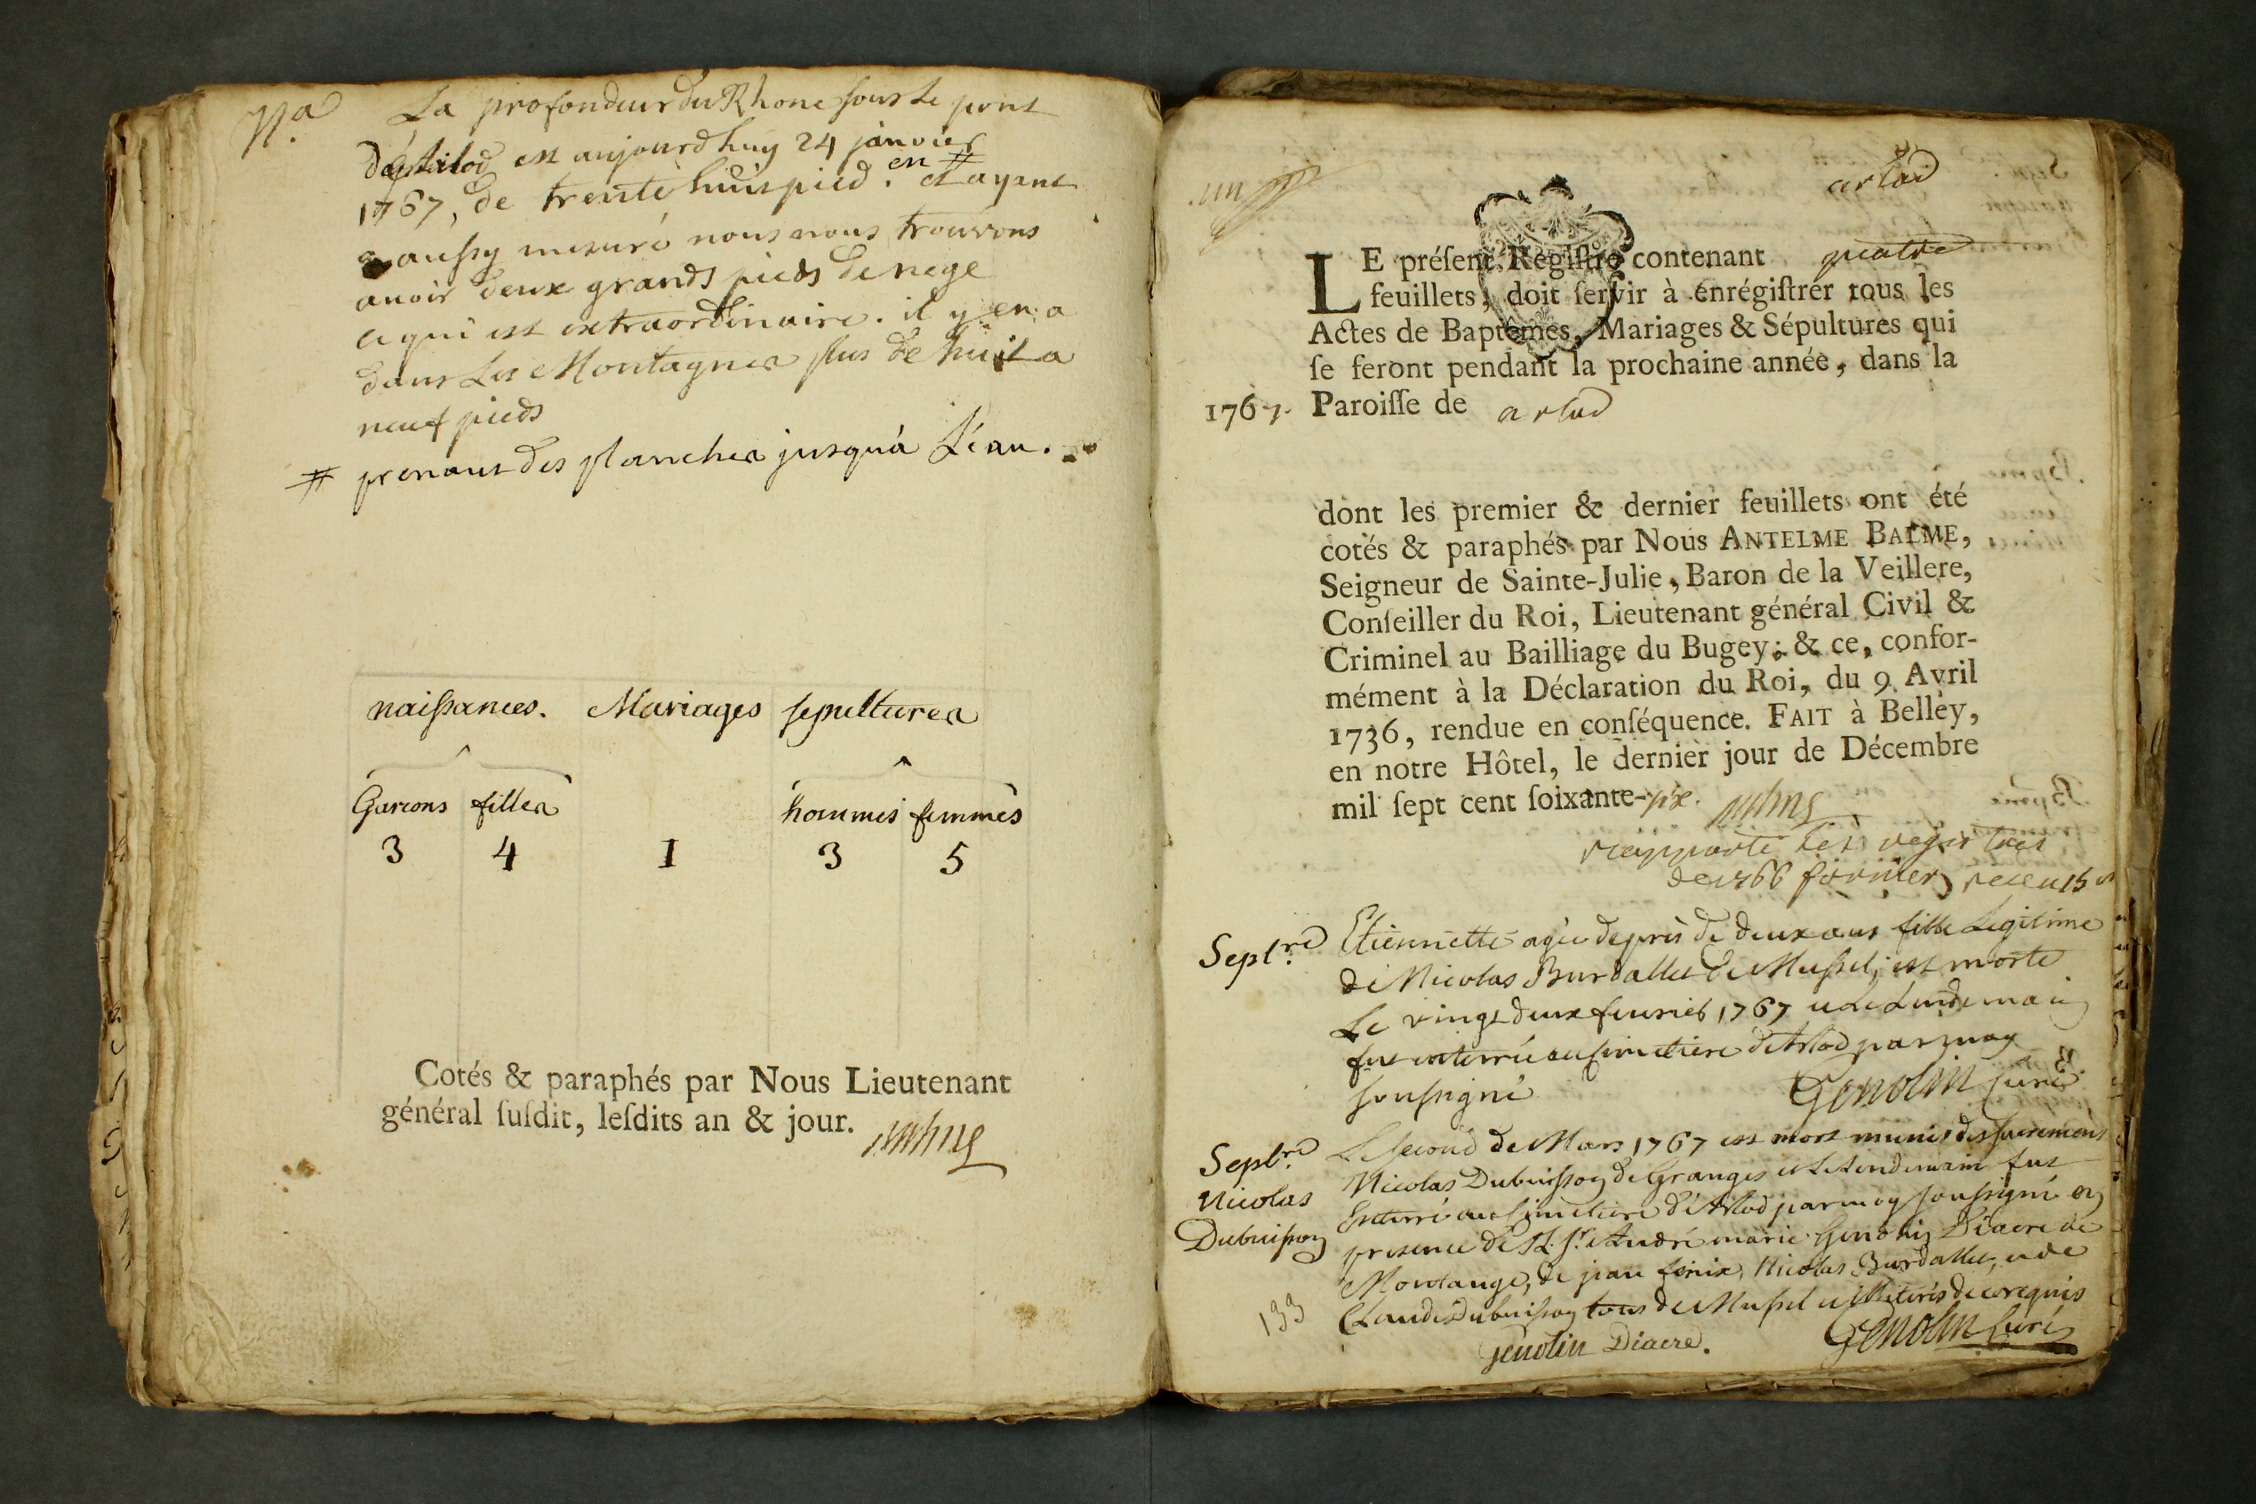 Na La profondeur du Rhone sous le pont
d'Arlod est aujourdhuy 24 janvier
1767, de trente huit pied. en # et ayant
aussy mesuré nous nous trouvons
avoir deux grands pieds de nege
ce qui est extraordinaire. il y en a
dans Les Montagnes plus de huit a
neuf pieds
# prenant des planches jusqu'à L'eau.
naissances. Mariages sepultures
Garcons filles hommes femmes
3 4 1 3 5
Cotés & paraphés par Nous Lieutenant
général ſuſdit, leſdits an & jour.
un
arlod
LE préſent Régiſtre contenant quatre
feuillets, doit ſervir à enrégiſtrer tous les
Actes de Baptêmes, Mariages & Sépultures qui
ſe feront pendant la prochaine année, dans la
1767. Paroiſſe de arlod
dont les premier & dernier feuillets ont été
cotés & paraphés par Nous ANTELME BALME,
Seigneur de Sainte-Julie, Baron de la Veillere,
Conſeiller du Roi, Lieutenant général Civil &
Criminel au Bailliage du Bugey; & ce, confor-
mément à la Déclaration du Roi, du 9 Avril
1736, rendue en conſéquence. FAIT à Belley,
en notre Hôtel, le dernier jour de Décembre
mil ſept cent ſoixante-six.
rapporté les registres
de 1766 receu 15 s
Sepl.re Etiennette agée de près de deux ans fille Legitime
de Nicolas Burdallet de Mussel, est morte
Le vingt deux fevrier 1767 et Le Lendemain
fut enterrée au simetiere d'Arlod par moy
soussigné Genolin Curé
Sepl.re Le second de Mars 1767 est mort munis des sacremens
Nicolas Nicolas Dubuisson de Granges et Le Lendemain fut
Dubuisson Enterré au simetiere d'Arlod par moy soussigné en
presence de Sr. André marie Genolin Diacre de
Montange, de jean fenix, Nicolas Burdallet, et de
133 Claude Dubuisson tous de Mussel illiterés de ce requis
Genolin Diacre. Genolin Curé